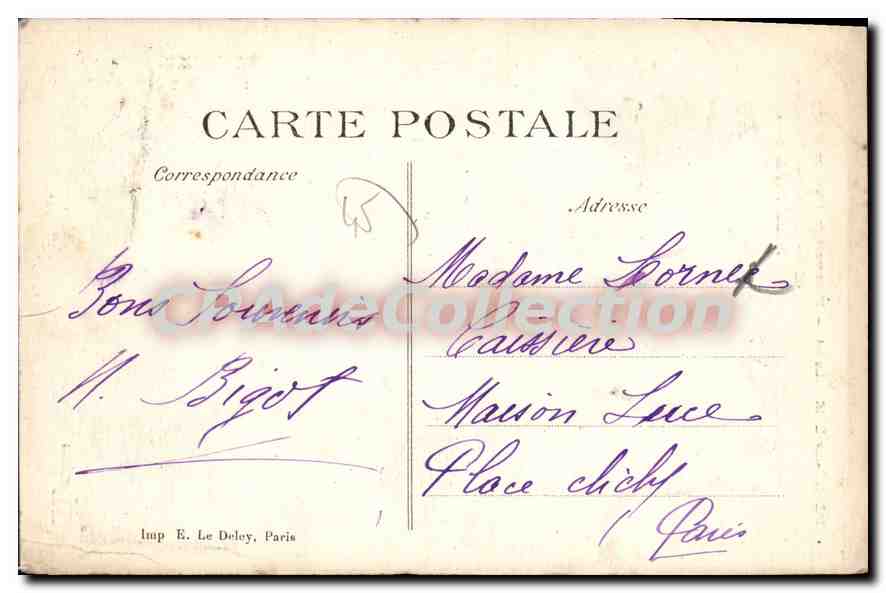 CARTE POSTALE
Correspondance
Adresse
45
Bons Souvenirs
N. Bigot
Madame
Caissière
Maison
Place clichy
Paris
CPAdeCollection
Imp E. Le Deley, Paris